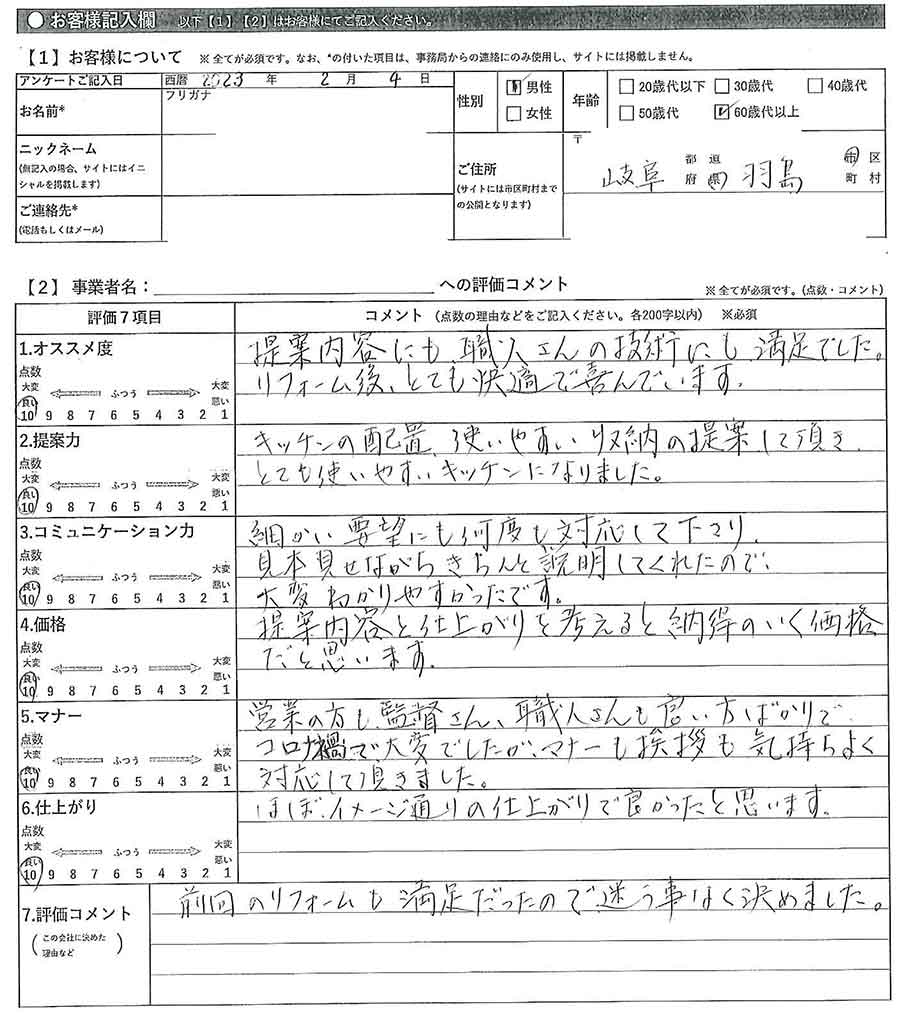 ● お客様記入欄 以下【1】【2】はお客様にてご記入ください。
【1】お客様について ※全てが必須です。なお、*の付いた項目は、事務局からの連絡にのみ使用し、サイトには掲載しません。
アンケートご記入日 西暦 2023 年 2 月 4 日
お名前* フリガナ
性別 男性 女性
年齢 20歳代以下 30歳代 40歳代
50歳代 60歳代以上
ニックネーム
(無記入の場合、サイトにはイニ
シャルを掲載します)
ご連絡先*
(電話もしくはメール)
ご住所
(サイトには市区町村まで
の公開となります)
〒
岐阜 都道府県 羽島 市区町村
【2】事業者名: への評価コメント ※全てが必須です。(点数・コメント)
評価7項目 コメント (点数の理由などをご記入ください。各200字以内) ※必須
1.オススメ度
点数
大変良い ふつう 大変悪い
10 9 8 7 6 5 4 3 2 1
提案内容にも職人さんの技術にも満足でした。
リフォーム後、とても快適で喜んでいます。
2.提案力
点数
大変良い ふつう 大変悪い
10 9 8 7 6 5 4 3 2 1
キッチンの配置、使いやすい収納の提案して頂き、
とても使いやすいキッチンになりました。
3.コミュニケーション力
点数
大変良い ふつう 大変悪い
10 9 8 7 6 5 4 3 2 1
細かい要望にも何度も対応して下さり、
見本見せながらきちんと説明してくれたので、
大変わかりやすかったです。
4.価格
点数
大変良い ふつう 大変悪い
10 9 8 7 6 5 4 3 2 1
提案内容と仕上がりを考えると納得のいく価格
だと思います。
5.マナー
点数
大変良い ふつう 大変悪い
10 9 8 7 6 5 4 3 2 1
営業の方も監督さん、職人さんも良い方ばかりで、
コロナ禍で大変でしたが、マナーも挨拶も気持ちよく
対応して頂きました。
6.仕上がり
点数
大変良い ふつう 大変悪い
10 9 8 7 6 5 4 3 2 1
ほぼ、イメージ通りの仕上がりで良かったと思います。
7.評価コメント
(この会社に決めた
理由など)
前回のリフォームも満足だったので迷う事なく決めました。